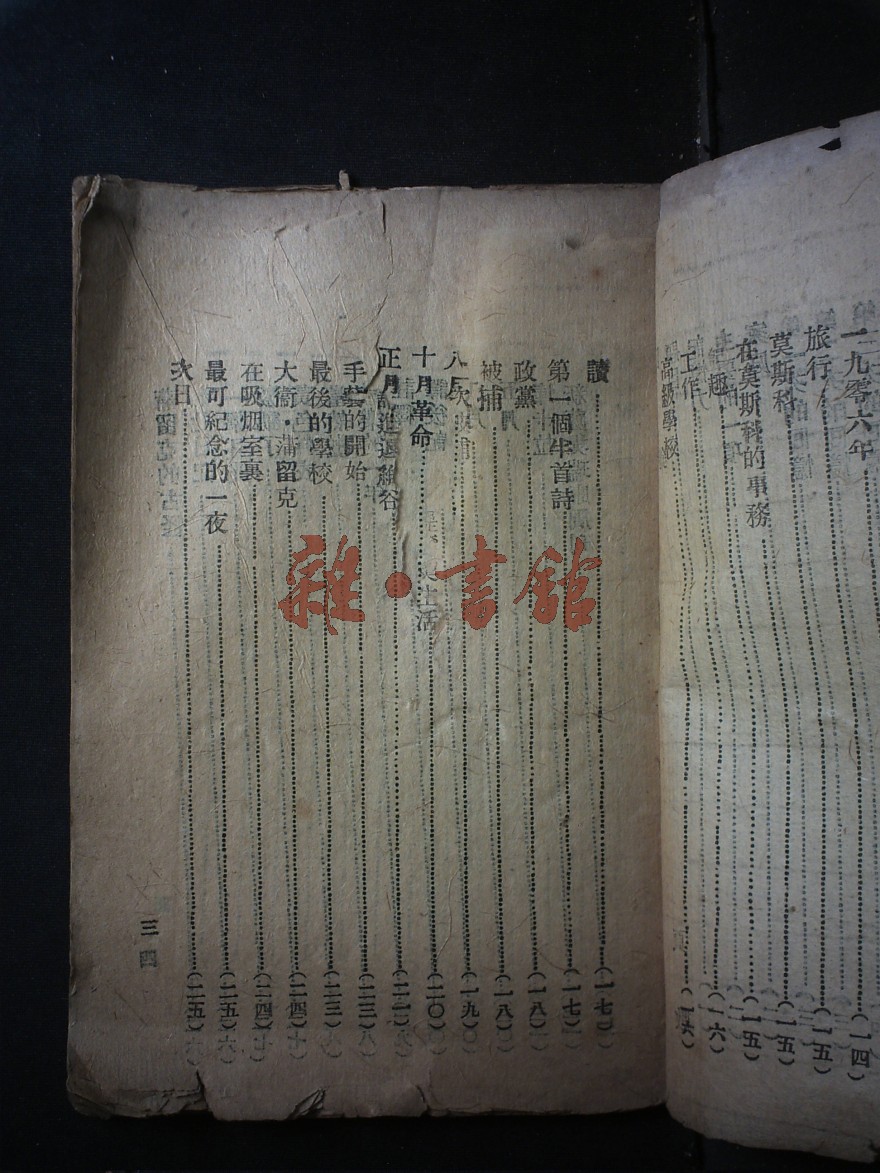 一九零六年……(一四)
旅行……(一五)
莫斯科……(一五)
在莫斯科的事務……(一五)
趣……(一六)
工作……(一六)
高級學校
讀……(一七)
第一個半首詩……(一七)
政黨……(一八)
被捕……(一八)
八月……(一九)
十月革命……(二〇)
正月 進退維谷……(二一)
手藝的開始……(二三)
最後的學校……(二三)
大衛·蒲留克……(二四)
在吸烟室裏……(二四)
最可紀念的一夜……(二五)
次日……(二五)
三
四
雜·書館